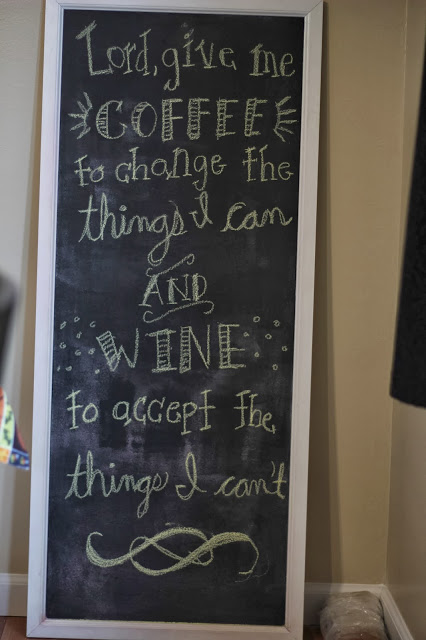 Lord, give me
COFFEE
to change the
things I can
AND
WINE
to accept the
things I can't